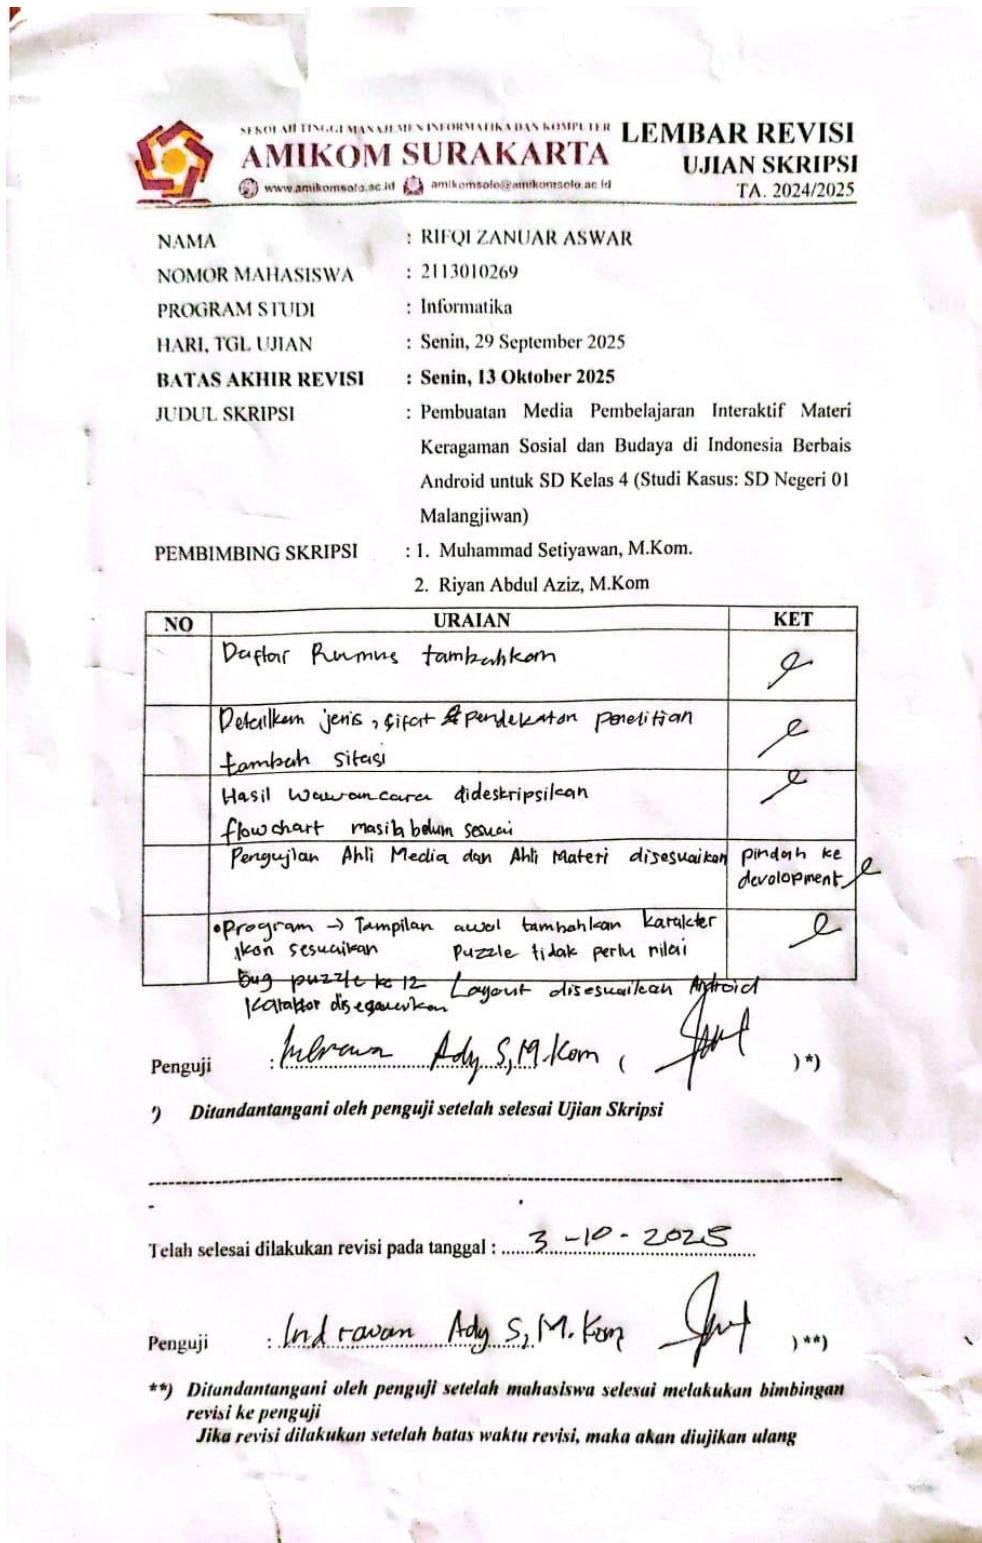 SEKOLAH TINGGI MANAJEMEN INFORMATIKA DAN KOMPUTER
AMIKOM SURAKARTA
www.amikomsolo.ac.id amikomsolo@amikomsolo.ac.id
LEMBAR REVISI
UJIAN SKRIPSI
TA. 2024/2025
NAMA : RIFQI ZANUAR ASWAR
NOMOR MAHASISWA : 2113010269
PROGRAM STUDI : Informatika
HARI, TGL UJIAN : Senin, 29 September 2025
BATAS AKHIR REVISI : Senin, 13 Oktober 2025
JUDUL SKRIPSI : Pembuatan Media Pembelajaran Interaktif Materi
Keragaman Sosial dan Budaya di Indonesia Berbais
Android untuk SD Kelas 4 (Studi Kasus: SD Negeri 01
Malangjiwan)
PEMBIMBING SKRIPSI : 1. Muhammad Setiyawan, M.Kom.
2. Riyan Abdul Aziz, M.Kom
NO URAIAN KET
Daftar Rumus tambahkan
Detailkan jenis, sifat & pendekatan penelitian
tambah sitasi
Hasil wawancara dideskripsikan
flowchart masih belum sesuai
Pengujian Ahli Media dan Ahli Materi disesuaikan pindah ke
devolopment
• Program → Tampilan awal tambahkan karakter
ikon sesuaikan puzzle tidak perlu nilai
Bug puzzle ke 12 Layout disesuaikan Android
Karakter
Penguji : Indrawan Ady S, M.Kom ( ) *)
*) Ditandantangani oleh penguji setelah selesai Ujian Skripsi
Telah selesai dilakukan revisi pada tanggal : 3 - 10 - 2025
Penguji : Indrawan Ady S, M.Kom ) **)
**) Ditandantangani oleh penguji setelah mahasiswa selesai melakukan bimbingan
revisi ke penguji
Jika revisi dilakukan setelah batas waktu revisi, maka akan diujikan ulang